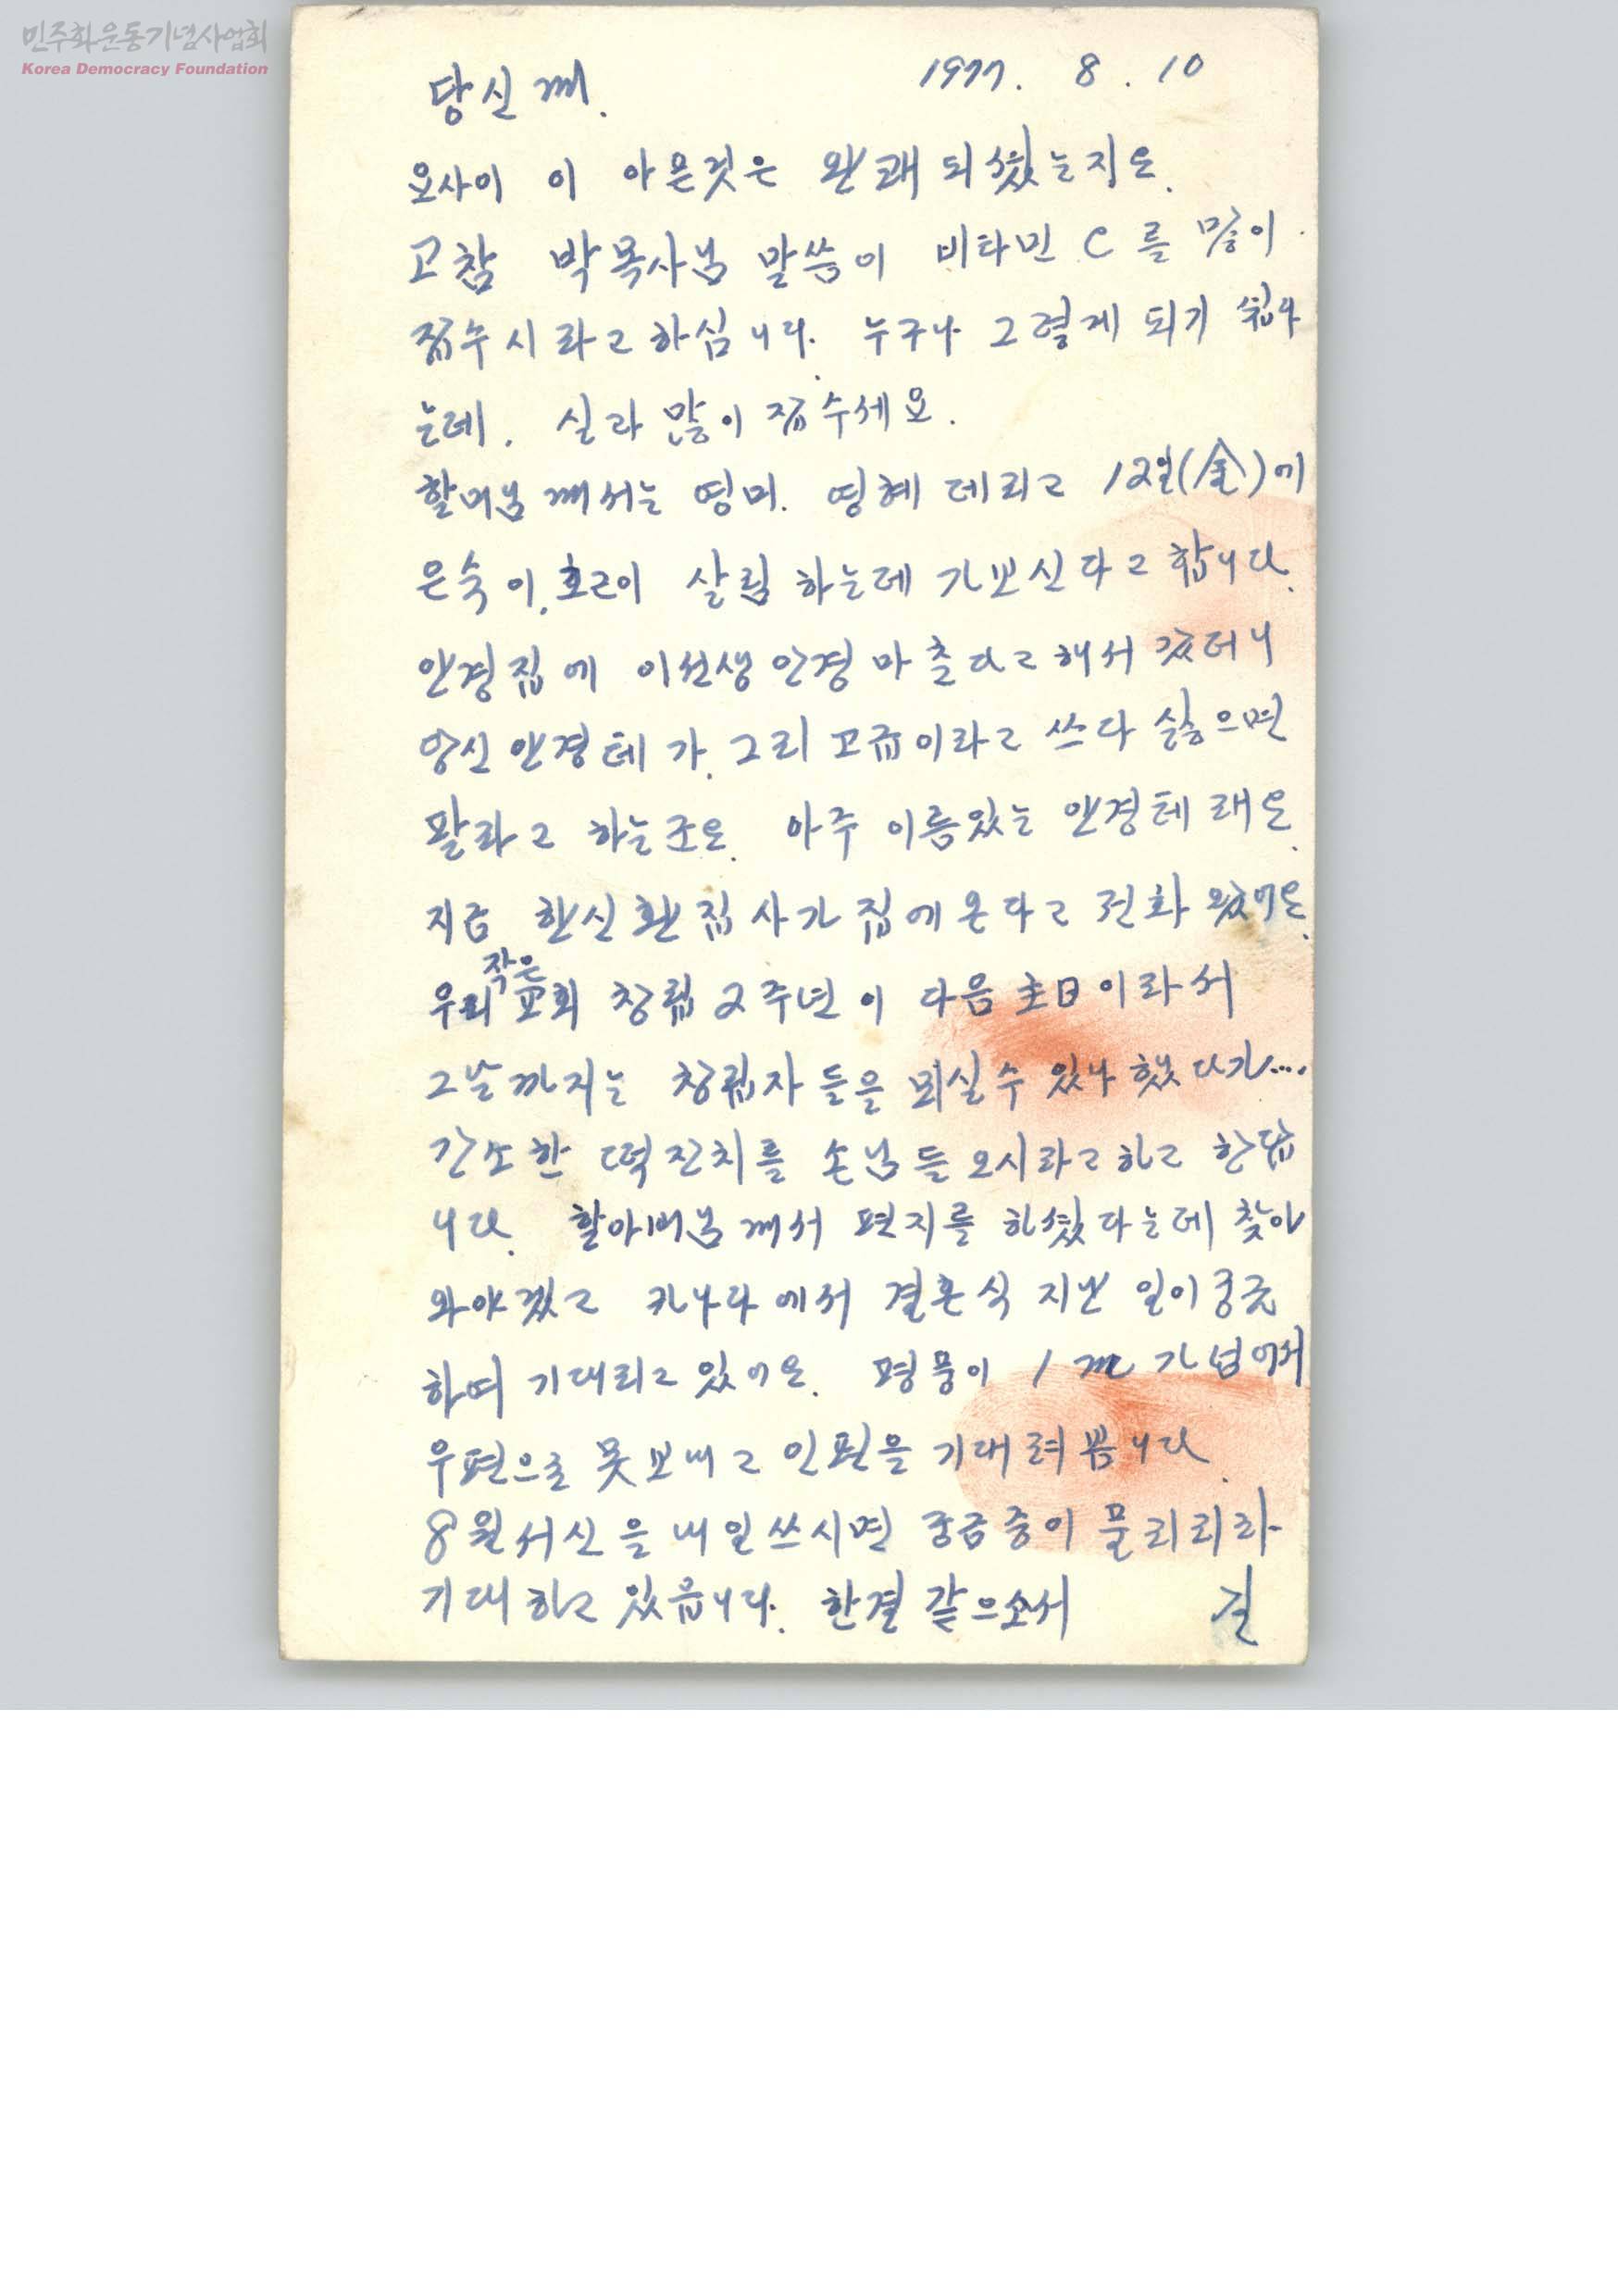 민주화운동기념사업회
Korea Democracy Foundation
당신께. 1977. 8. 10
요사이 이 아픈것은 완쾌되셨는지요.
고참 박목사님 말씀이 비타민 C를 많이
잡수시라고하십니다. 누구나 그렇게 되기 쉽다
는데. 실과 많이 잡수세요.
할머님께서는 영미. 영혜 데리고 12일(金)에
은숙이, 호근이 살림하는데 가보신다고 합니다.
안경집에 이선생안경 마춘다고해서 갔더니
당신 안경테가 그리 고급이라고 쓰다 싫으면
팔라고 하는군요. 아주 이름있는 안경테래요.
지금 한신환집사가 집에 온다고 전화 왔어요.
우리 작은 교회 창립 2주년이 다음 主日이라서
그날까지는 창립자들을 뫼실수 있나 했다가....
간소한 떡잔치를 손님들 오시라고하고 한답
니다. 할아버님께서 편지를 하셨다는데 찾아
와야겠고 카나다에서 결혼식 지난 일이 궁금
하여 기대리고 있어요. 병풍이 1m가 넘어서
우편으로 못보내고 인편을 기대려봅니다.
8월서신을 내일쓰시면 궁금증이 풀리리라
기대하고 있읍니다. 한결같으소서 길